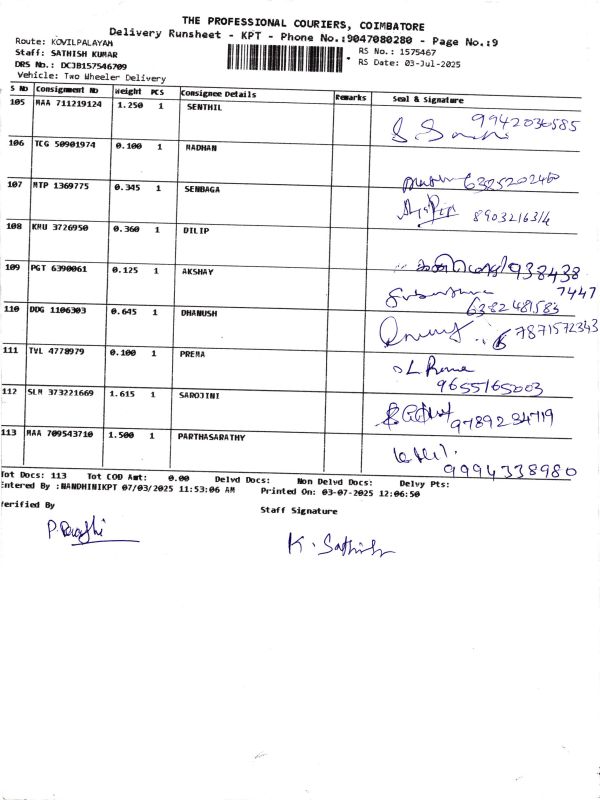 THE PROFESSIONAL COURIERS, COIMBATORE
Delivery Runsheet - KPT - Phone No.:9047080280 - Page No.:9
Route: KOVILPALAYAM
Staff: SATHISH KUMAR
RS No.: 1575467
DRS No.: DCJB157546709
RS Date: 03-Jul-2025
Vehicle: Two Wheeler Delivery
S No Consignment No Weight PCS Consignee Details Remarks Seal & Signature
105 MAA 711219124 1.250 1 SENTHIL 9942030585
106 TCG 50901974 0.100 1 MADHAN 6325202460
107 MTP 1369775 0.345 1 SENBAGA 8903216314
108 KMU 3726950 0.360 1 DILIP 938438
7447
109 PGT 6390061 0.125 1 AKSHAY
6382481583
110 DDG 1106303 0.645 1 DHANUSH 7871572343
111 TVL 4778979 0.100 1 PREMA
9655165003
112 SLM 373221669 1.615 1 SAROJINI 9789294719
113 MAA 709543710 1.500 1 PARTHASARATHY
9994338980
Tot Docs: 113 Tot COD Amt: 0.00 Delvd Docs: Non Delvd Docs: Delvy Pts:
Entered By :NANDHINIKPT 07/03/2025 11:53:06 AM Printed On: 03-07-2025 12:06:50
Verified By
Staff Signature
K. Sathish